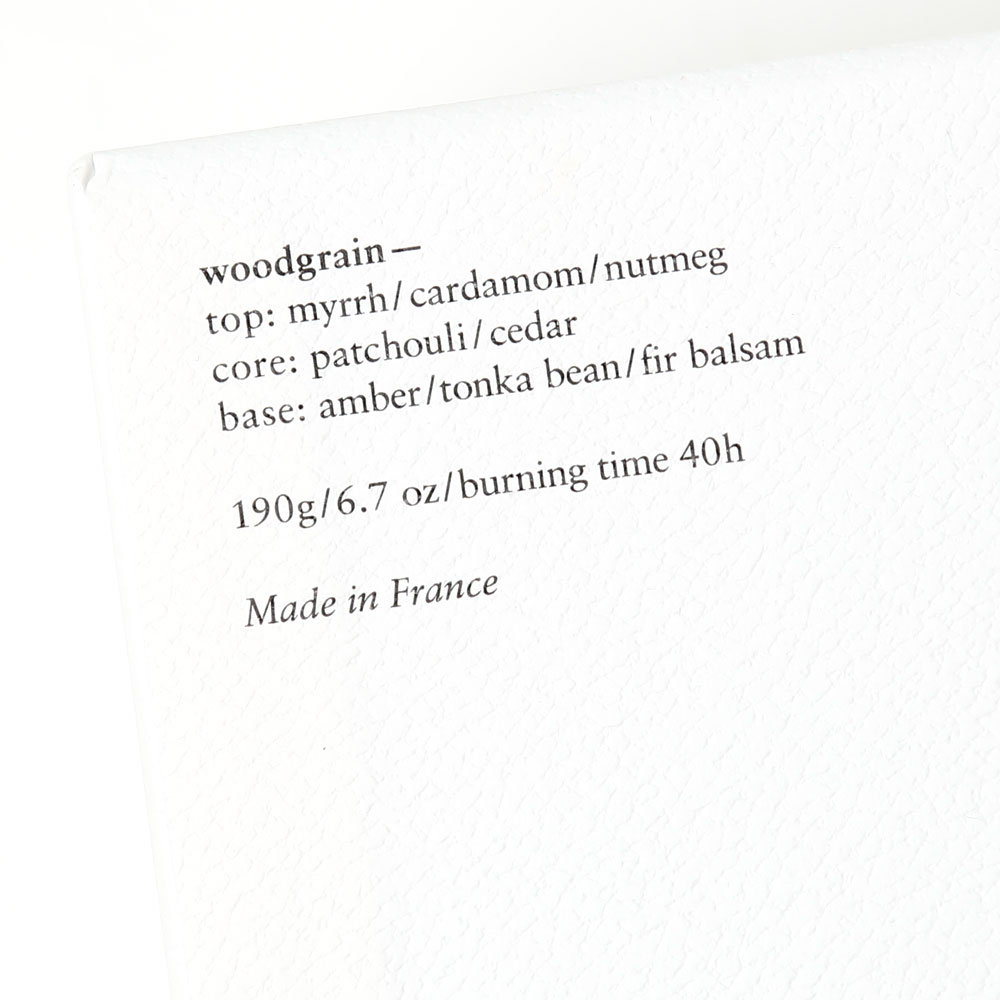 woodgrain —
top: myrrh/cardamom/nutmeg
core: patchouli/cedar
base: amber/tonka bean/fir balsam
190g/6.7 oz/burning time 40h
Made in France